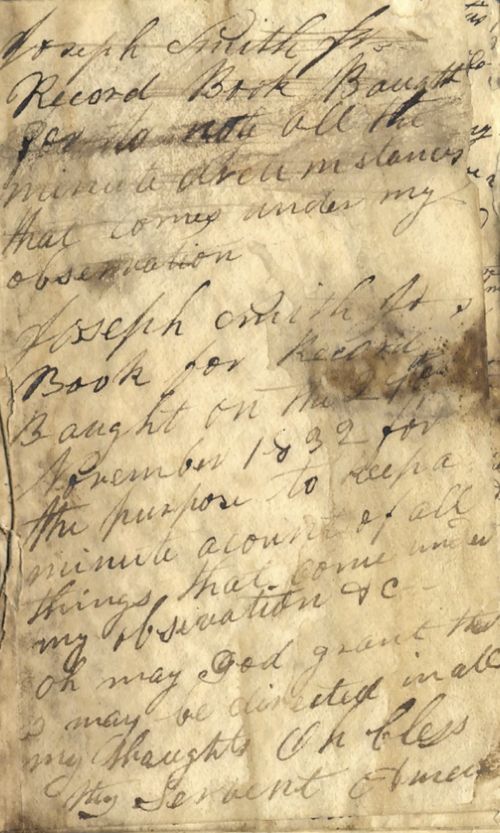 Joseph Smith Jr–
Record Book Baught
for to note all the
minute circumstances
that comes under my
observation
Joseph Smith Jrs
Book for Record
Baught on the 27th
November 1832 for
the purpose to keep a
minute acount of all
things that come under
my obsivation &c
oh may God grant that
I may be directed in all
my thaughts Oh bless
thy Servent Amen